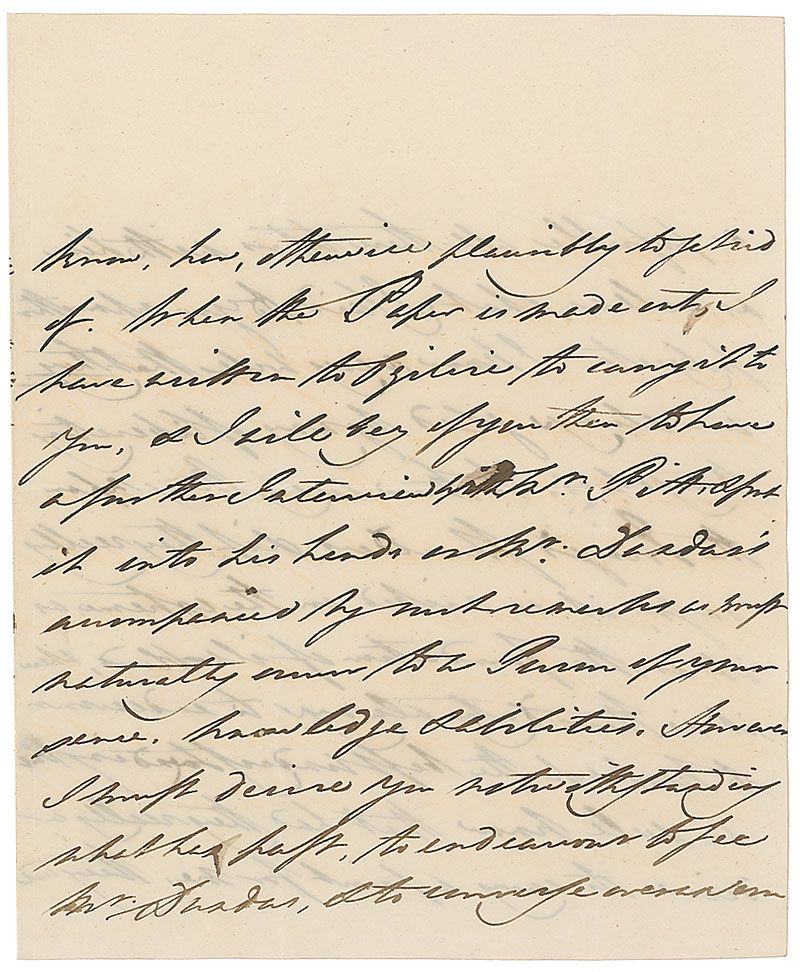 know, how, otherwise plausibly to get rid
of. When the Paper is made out, I
have written to Ogilvie to carry it to
You, & I will beg of you then to have
a further Interview with Mr. Pitt & put
it into his hands or Mr. Dundas's
accompanied by such remarks as must
naturally occur to a Person of your
sense, knowledge & abilities. However
I must desire You notwithstanding
what has past, to endeavour to see
Mr. Dundas, & to converse over